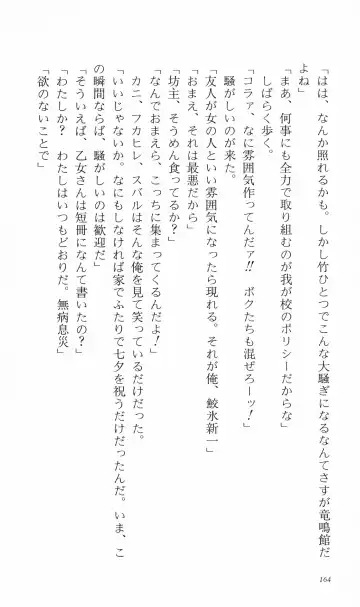 「はは、なんか照れるかも。しかし竹ひとつでこんな大騒ぎになるなんてさすが竜鳴館だ
よね」
「まあ、何事にも全力で取り組むのが我が校のポリシーだからな」
しばらく歩く。
「コラァ、なに雰囲気作ってんだァ!!　ボクたちも混ぜろーッ！」
騒がしいのが来た。
「友人が女の人といい雰囲気になったら現れる。それが俺、鮫氷新一」
「おまえ、それは最悪だから」
「坊主、そうめん食ってるか？」
「なんでおまえら、こっちに集まってくるんだよ！」
カニ、フカヒレ、スバルはそんな俺を見て笑っているだけだった。
「いいじゃないか。なにもしなければ家でふたりで七夕を祝うだけだったんだ。いま、こ
の瞬間ならば、騒がしいのは歓迎だ」
「そういえば、乙女さんは短冊になんて書いたの？」
「わたしか？　わたしはいつもどおりだ。無病息災」
「欲のないことで」
164